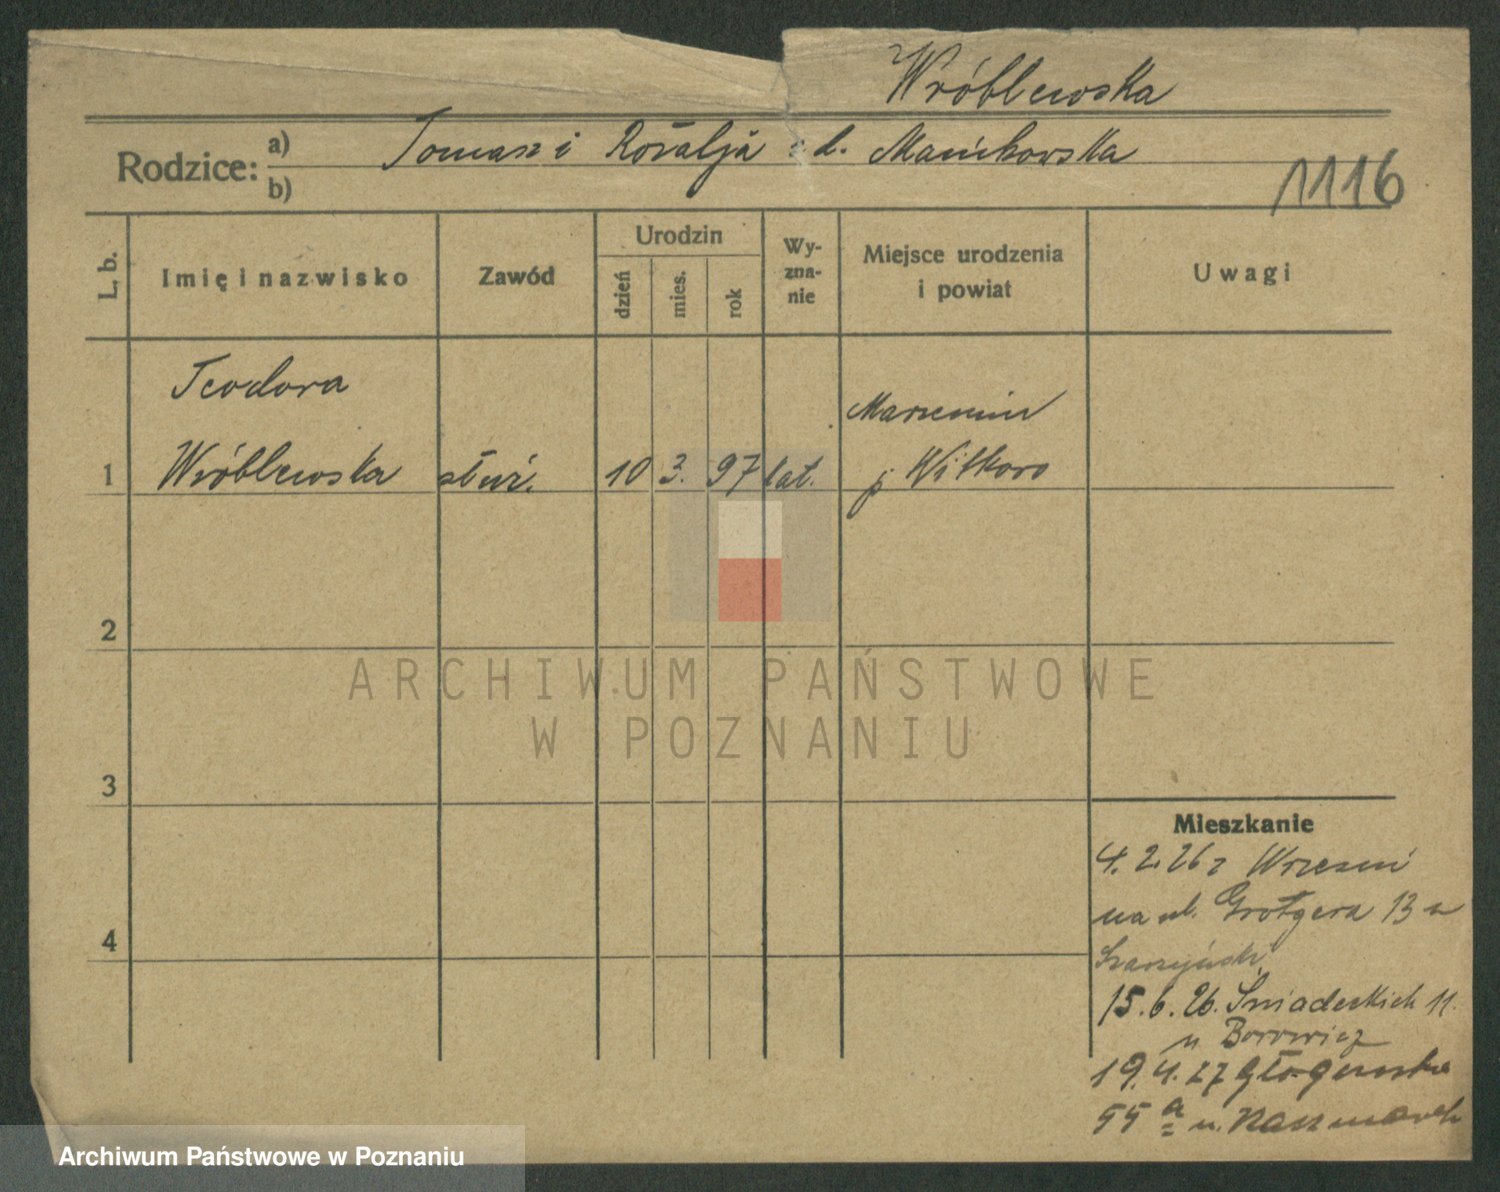 Wróblewska
Rodzice: a) Tomasz i Rozalja z d. Mańkowska
b)
1116
L. b.
Imię i nazwisko
Zawód
Urodzin
dzień
mies.
rok
Wy-
zna-
nie
Miejsce urodzenia
i powiat
Uwagi
Teodora
Marzenin
1 Wróblewska służ. 10 3. 97 kat. p Witkowo
2
3
4
ARCHIWUM PAŃSTWOWE
W POZNANIU
Mieszkanie
4.2.26 z Wrześni
na ul. Grotgera 13 u
15.6.26. Śniadeckich 11.
u Borowicz
19.4.27 Głogowska
55 a u. Kaszmarek
Archiwum Państwowe w Poznaniu